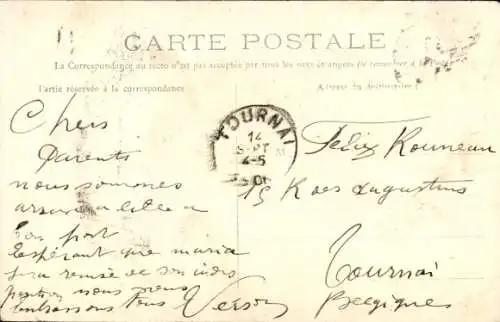 CARTE POSTALE
La Correspondance au recto n'est pas acceptée par tous les pays étrangers (se renseigner à la Poste)
Partie réservée à la correspondance
Adresse du destinataire
TOURNAI
14
SEPT
4-5
Chers
Parents
nous sommes
arrivé a lille a
bon port
Espérant que maria
sera remise de son indis
position nous vous
embrassons tous
Felix Rouneau
15 Rue augustins
Tournai
Belgiques